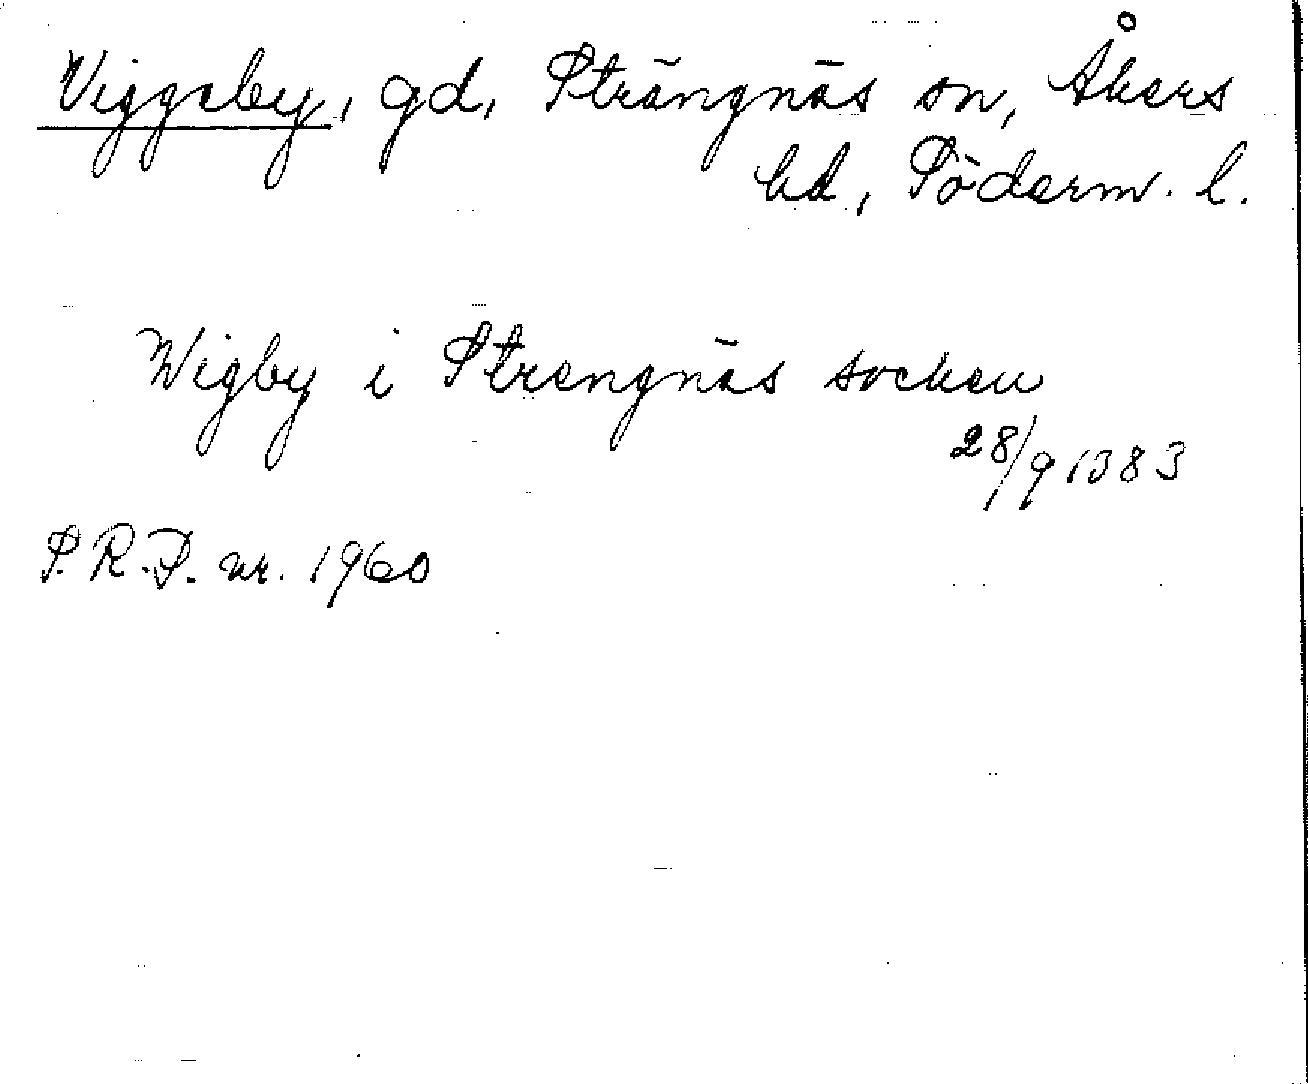 Viggeby, gd, Strängnäs sn, Åkers
hd, Söderm. l.
Wigby i Strengnäs socken
28/9 1383
S.R.P. nr. 1960